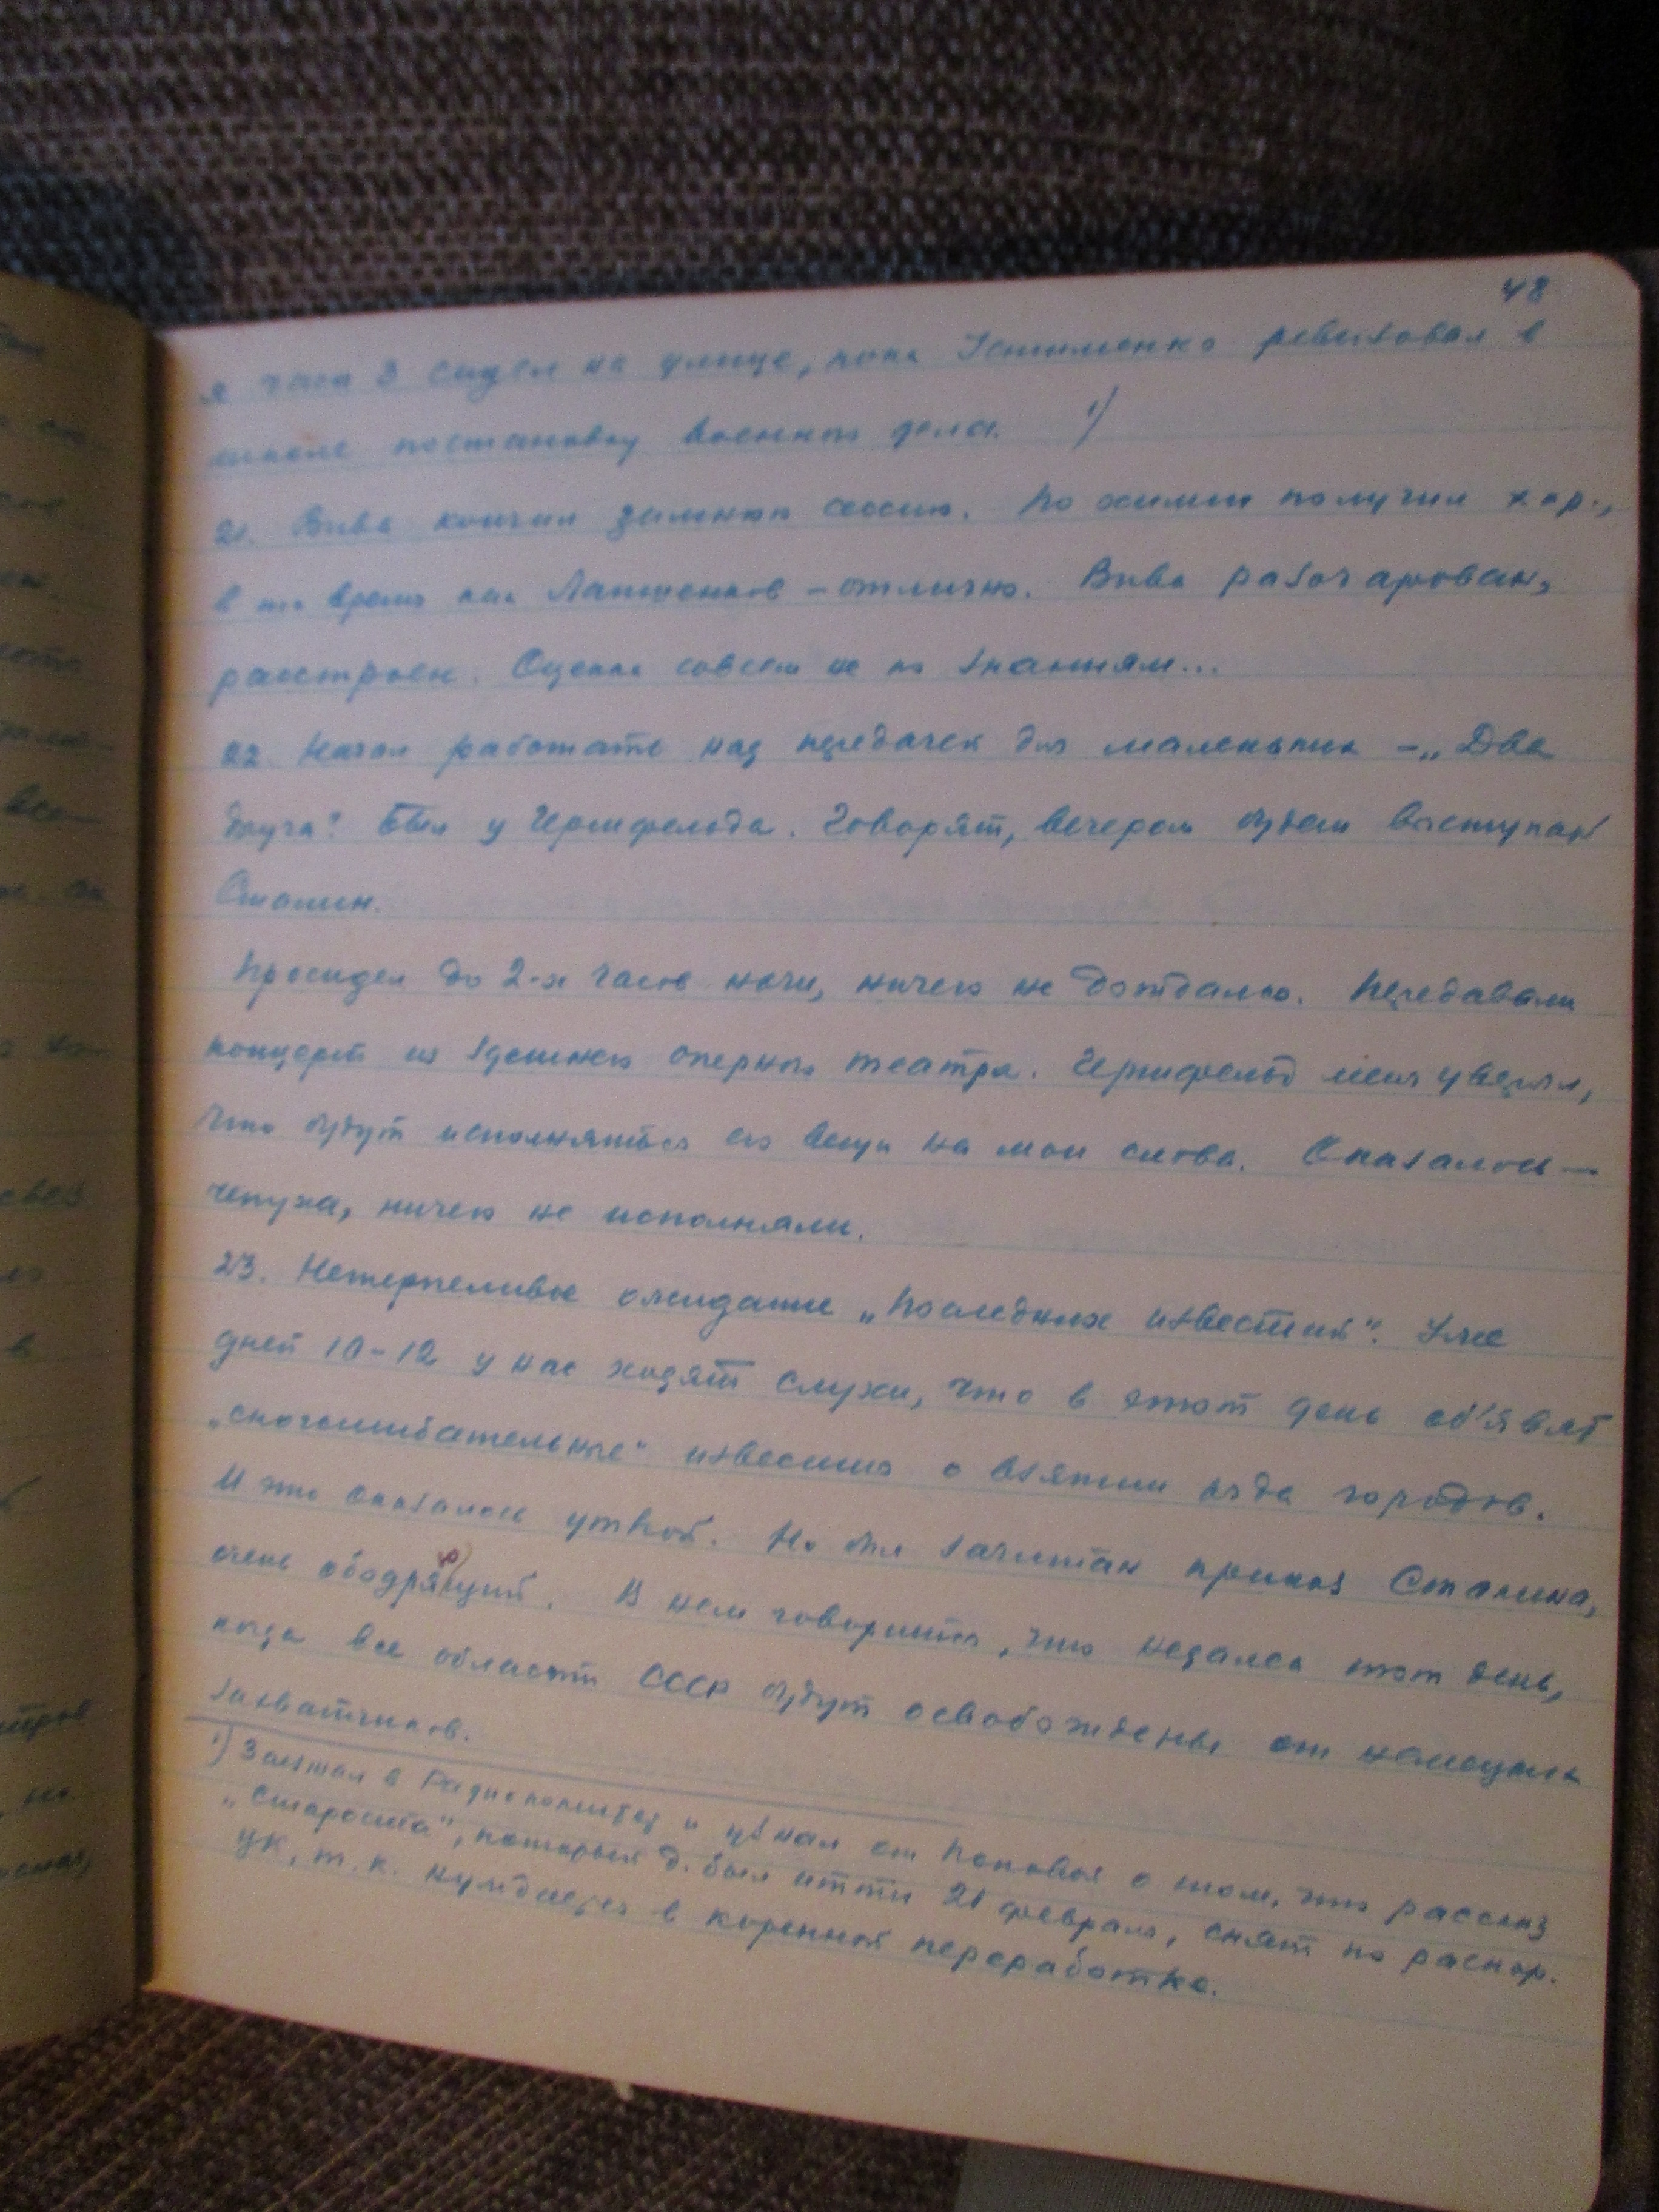 48
я часа 3 сидел на улице, пока Устименко ревизовал в
школе постановку военного дела. 1)
21. Вива кончил зимнюю сессию. По химии получил хор.,
в то время как Лапшенков – отлично. Вива разочарован,
расстроен. Оценка совсем не по знаниям...
22. Начал работать над передачей для маленьких – „Два
друга". Был у Гершфельда. Говорят, вечером будет выступать
Сталин.
Просидел до 2-х часов ночи, ничего не дождался. Передавали
концерт из здешнего оперного театра. Гершфельд меня уверял,
что будут исполняться его вещи на мои слова. Оказалось –
чепуха, ничего не исполняли.
23. Нетерпеливое ожидание „Последних известий". Уже
дней 10-12 у нас ходят слухи, что в этот день об'явят
„сногсшибательные" известия о взятии ряда городов.
И это оказалось уткой. Но был зачитан приказ Сталина,
очень ободряющий. В нем говорится, что недалек тот день,
когда все области СССР будут освобождены от немецких
захватчиков.
1) Заезжал в Радиокомитет и узнал от Поповой о том, что рассказ
„Староста", который д. был итти 21 февраля, снят по распор.
ЦК, т. к. нуждается в коренной переработке.